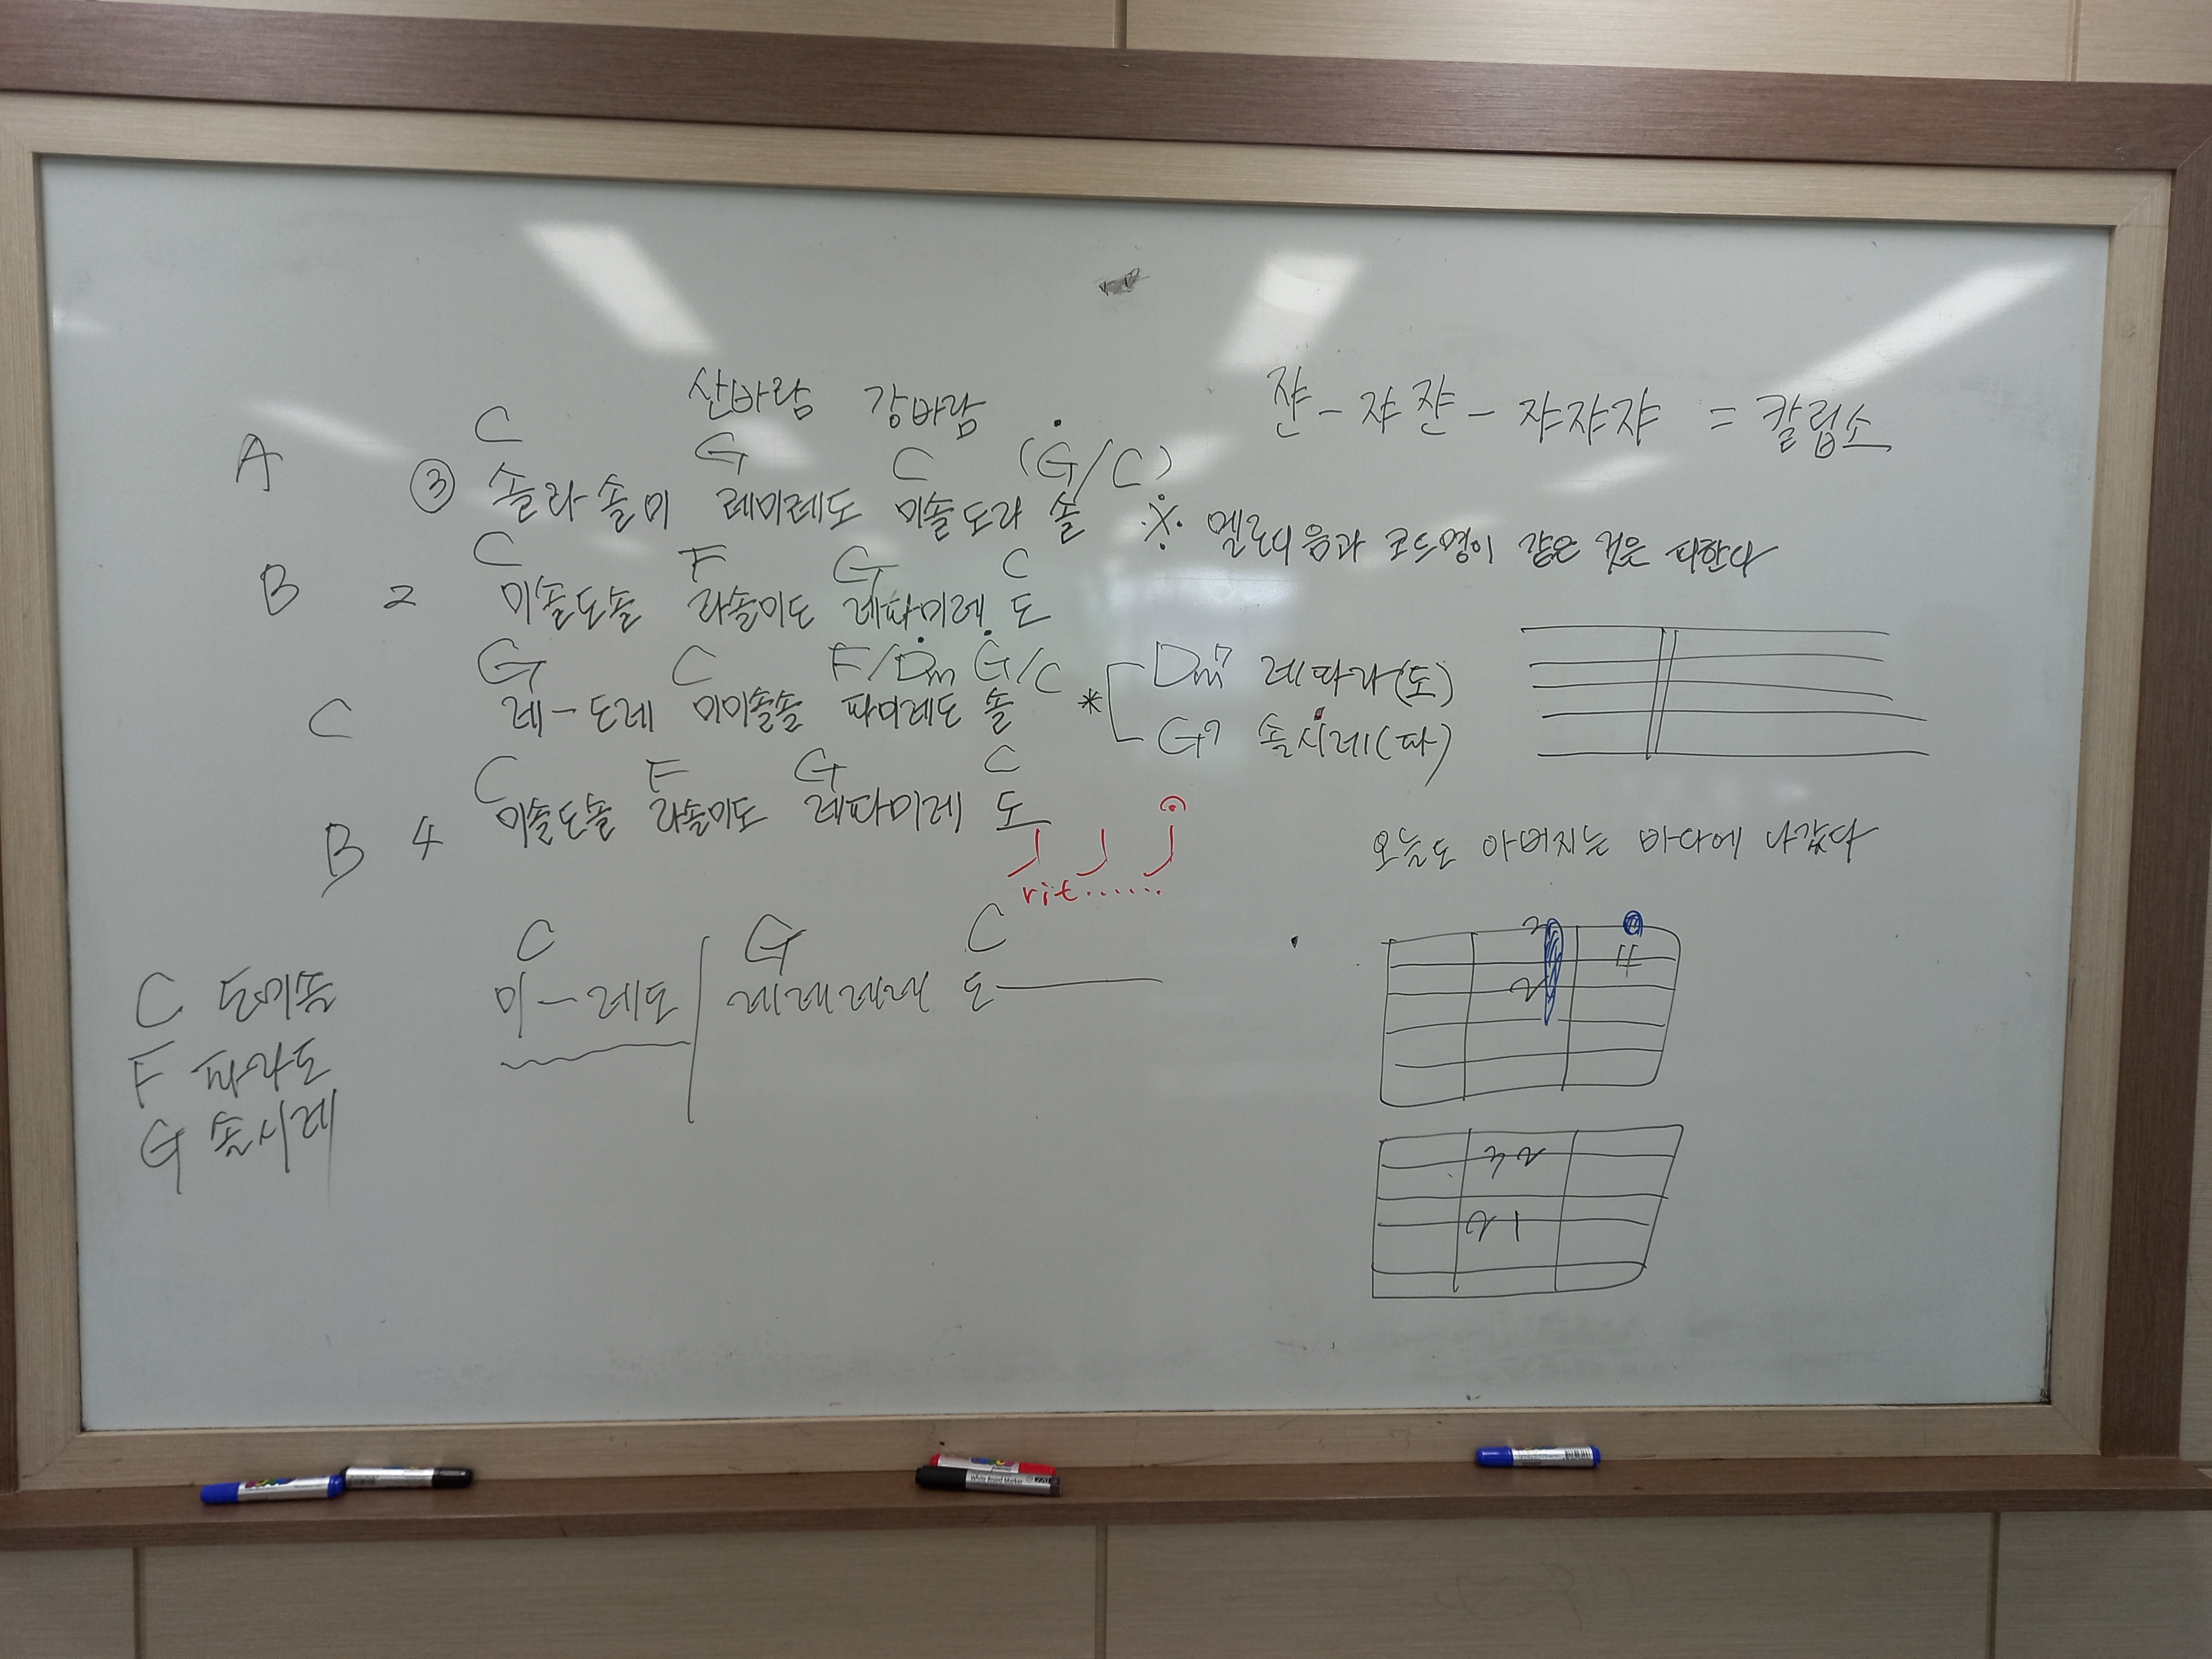 산바람 강바람
쟌-쟈쟌-쟈쟈쟈 = 칼립소
C G C (G/C)
A ③ 솔라솔미 레미레도 미솔도라 솔
※ 멜로디음과 코드명이 같은 것은 피한다
C F G C
B 2 미솔도솔 라솔미도 레파미레 도
G C F/Dm G/C
C 레-도레 미미솔솔 파미레도 솔
* Dm7 레파라(도)
G7 솔시레(파)
C F G C
B 4 미솔도솔 라솔미도 레파미레 도
rit......
오늘도 아버지는 바다에 나갔다
C G C
미-레도 레레레레 도
C 도미솔
F 파라도
G 솔시레
3 4
2
3 2
2 1